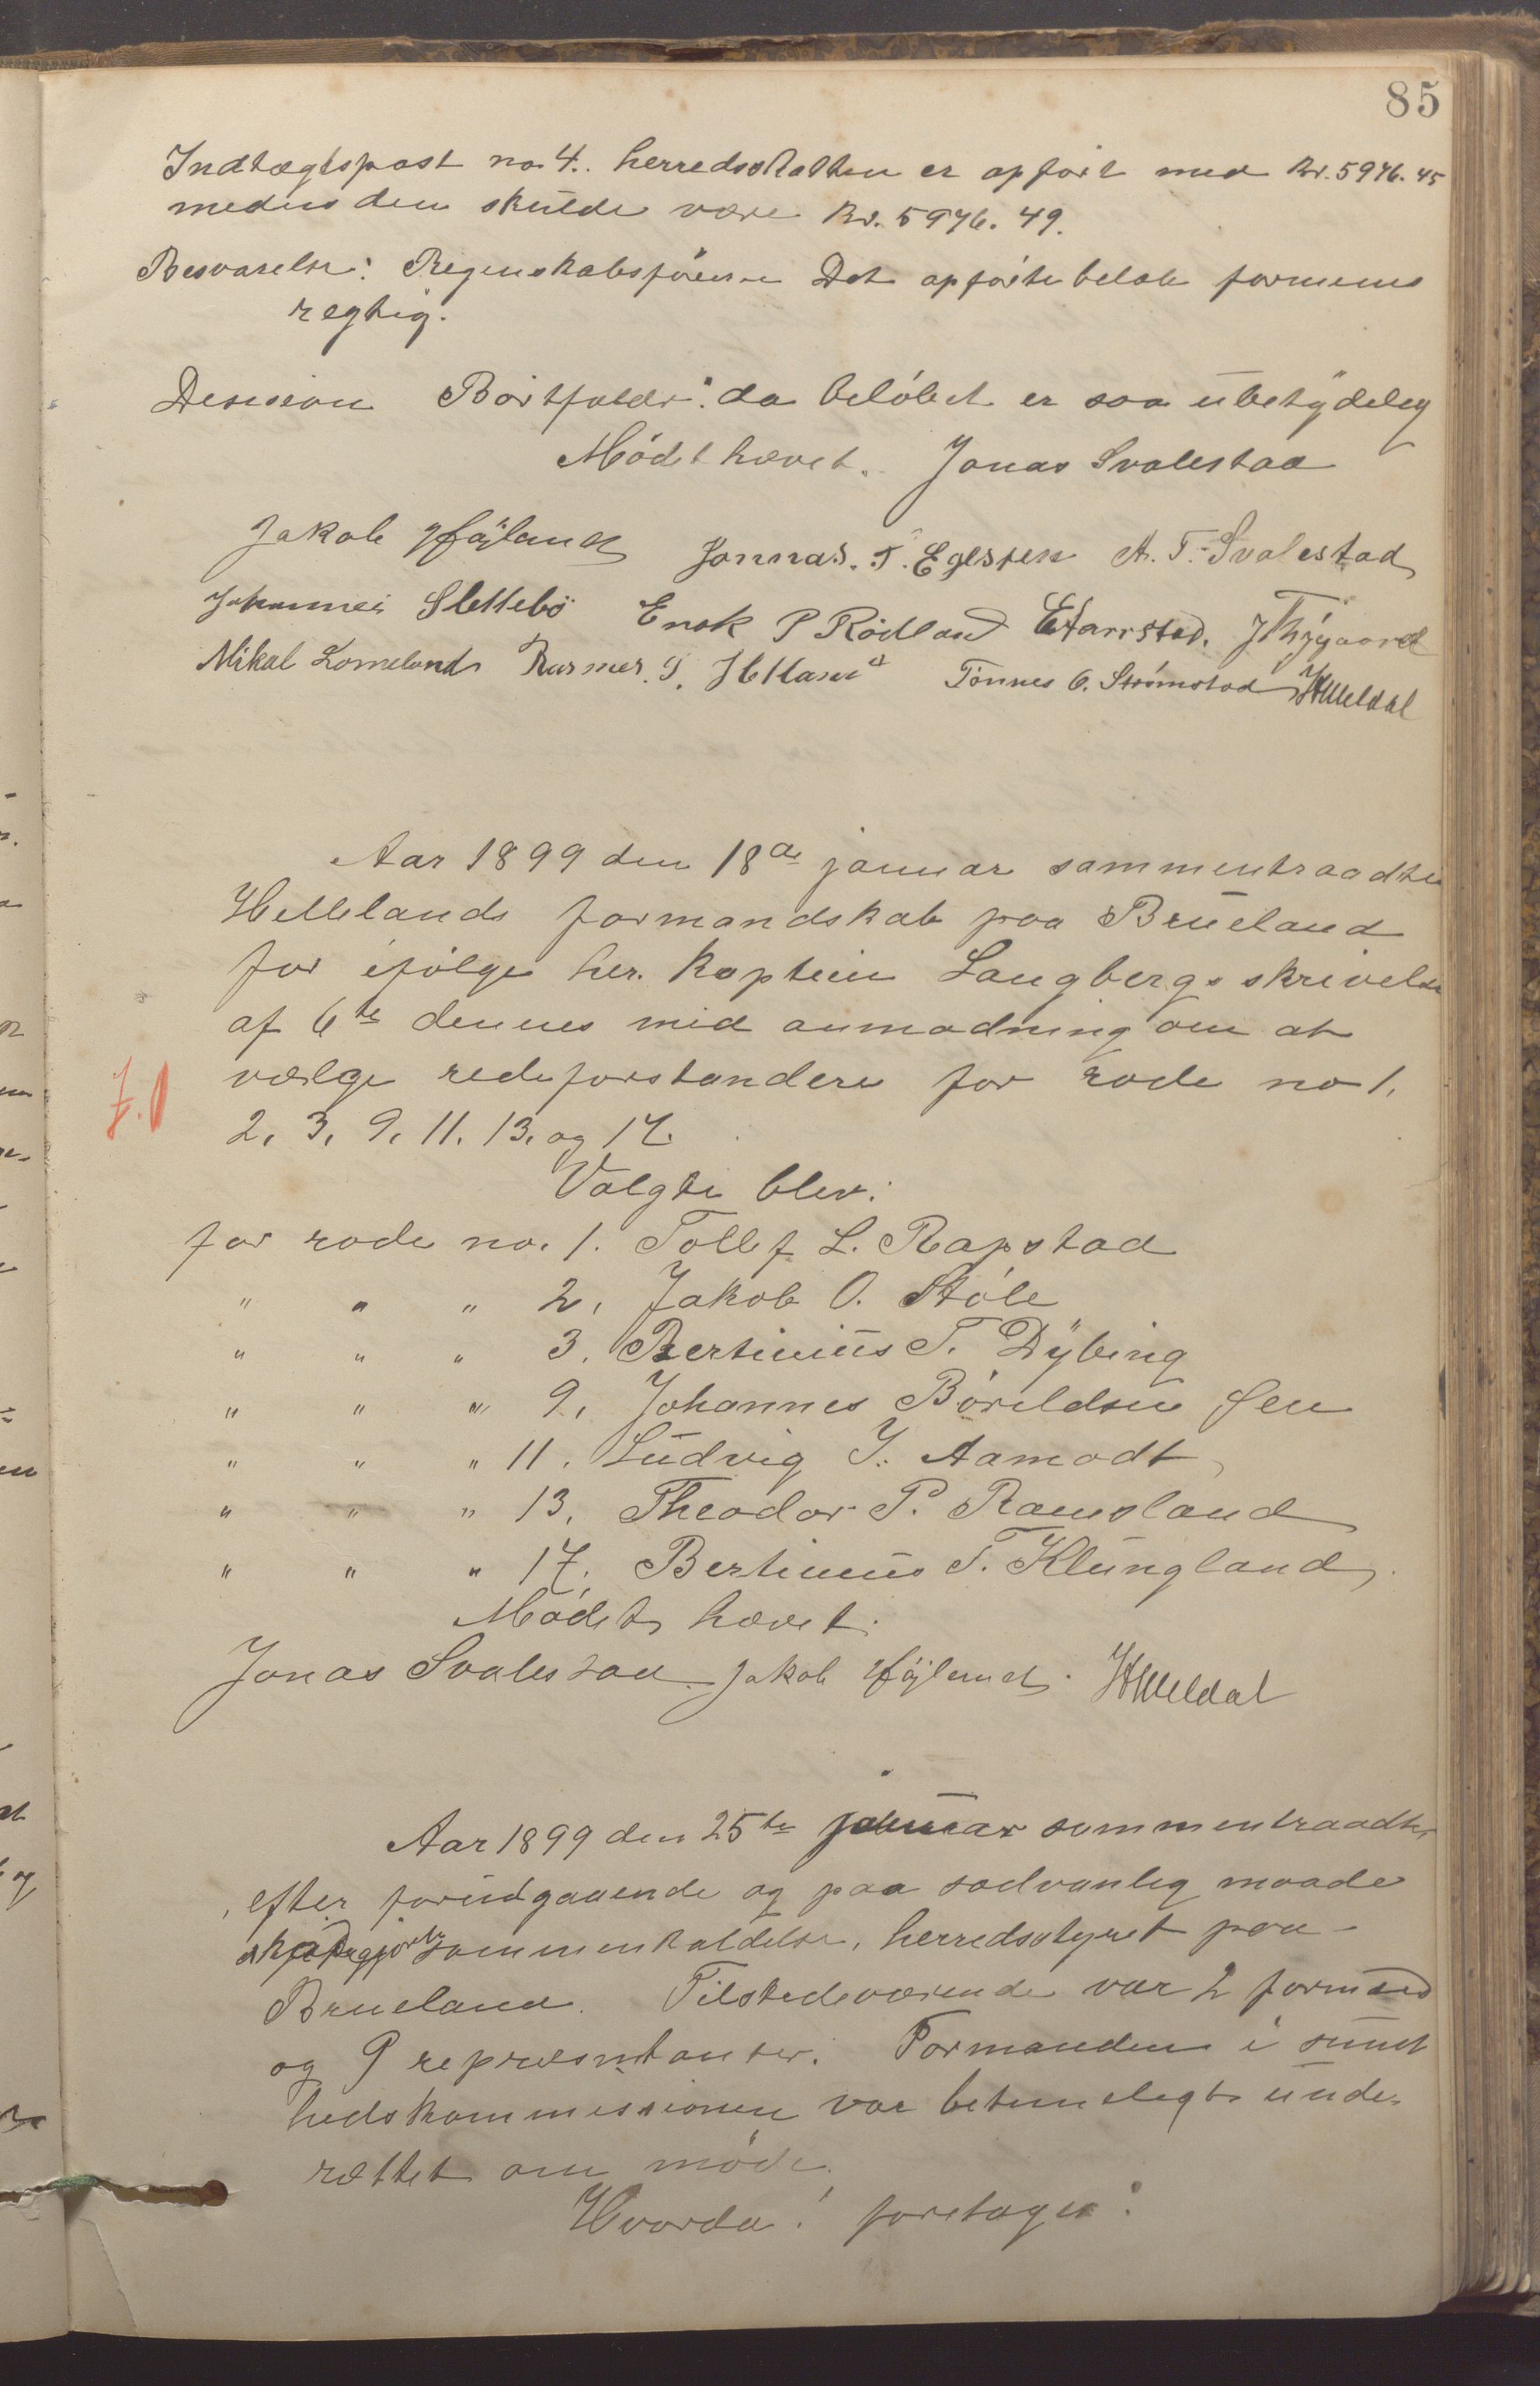 85
Indtægtspost no 4. herredsskatten er opført med Kr. 5976.45
medens den skulde være Kr. 5976.49.
Besvarelse: Regnskabsføreren Det opførte beløb formenes
regtig.
Desision Bortfalder da beløbet er saa ubetydeleg
Mødet hævet. Jonas Svalestad
Jakob Høyland Jonnas. T. Egelsen A. T. Svalestad
Johannes Slettebø Enok P Rødland E Harrstad.
Mikal Lomeland Rasmes. S. Hetland Tønnes O. Strømstad
Aar 1899 den 18de januar sammentraadte
Hellelands formandskab paa Brueland
for ifølge her. Kaptein Langbergs skrivelse
af 6te dennes med anmodning om at
vælge rodeforstandere for rode no 1.
2, 3, 9, 11. 13. og 17.
Valgte blev:
for rode no. 1. Tollef L. Rapstad
" " " 2, Jakob O. Støle
" " " 3. Bertinius T. Dybing
" " " 9, Johannes Børeldsen Øen
" " " 11. Ludvig I. Aamodt
" " " 13, Theodor P. Ramsland
" " " 17. Bertinius T. Klungland
Mødet hævet.
Jonas Svalestad. Jakob Høyland.
Aar 1899 den 25te januar sammentraadte
efter forudgaaende og paa sædvanlig maade
sammenkaldelse, herredsstyret paa
Brueland. Tilstedeværende var 2 formænd
og 9 repræsentanter. Formanden i sund
hedskommissionen var betimelegt under
rættet om møde.
Hvorda! foretoges: